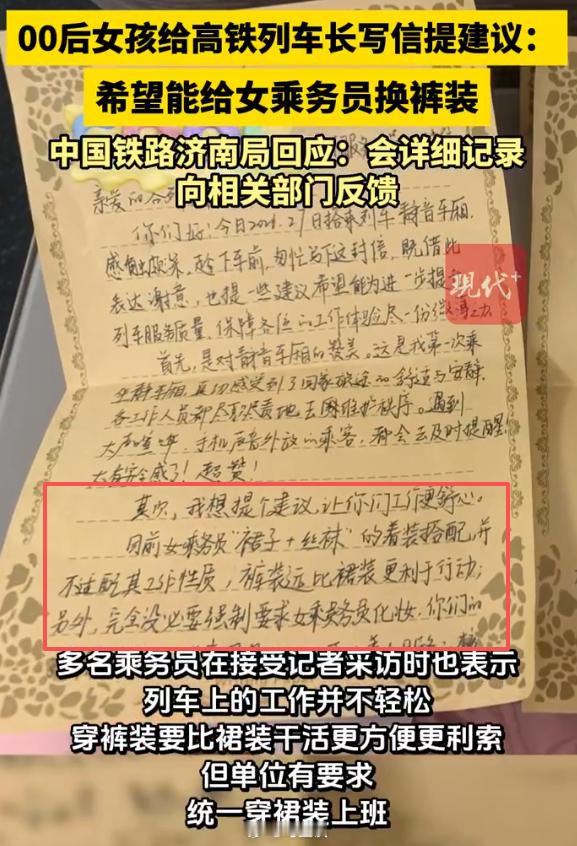 00后女孩给高铁列车长写信提建议：
希望能给女乘务员换裤装
中国铁路济南局回应：会详细记录
向相关部门反馈
亲爱的
你们好，今日2026.2.7日搭乘列车静音车厢，
感觉出颇深。故下车前，匆忙写下这封信，既借此
表达谢意，也提一些建议希望能为进一步提
列车服务质量，保障各位的工作体验尽一份
现代+
首先，是对静音车厢的赞美。这是我第一次乘
坐静音车厢，真切感受到了回家旅途的舒适与安静，
各工作人员都尽职尽责地去维护秩序。遇到
大声喧哗、手机声音外放的乘客，都会去及时提醒
太有安全感了！超赞！
其次，我想提个建议，让你们工作更舒心。
目前女乘务员“裙子+丝袜”的着装搭配，并
不适配其工作性质，裤装远比裙装更利于行动；
另外，完全没必要强制要求女乘务员化妆，你们的
多名乘务员在接受记者采访时也表示
列车上的工作并不轻松
穿裤装要比裙装干活更方便更利索
但单位有要求
统一穿裙装上班